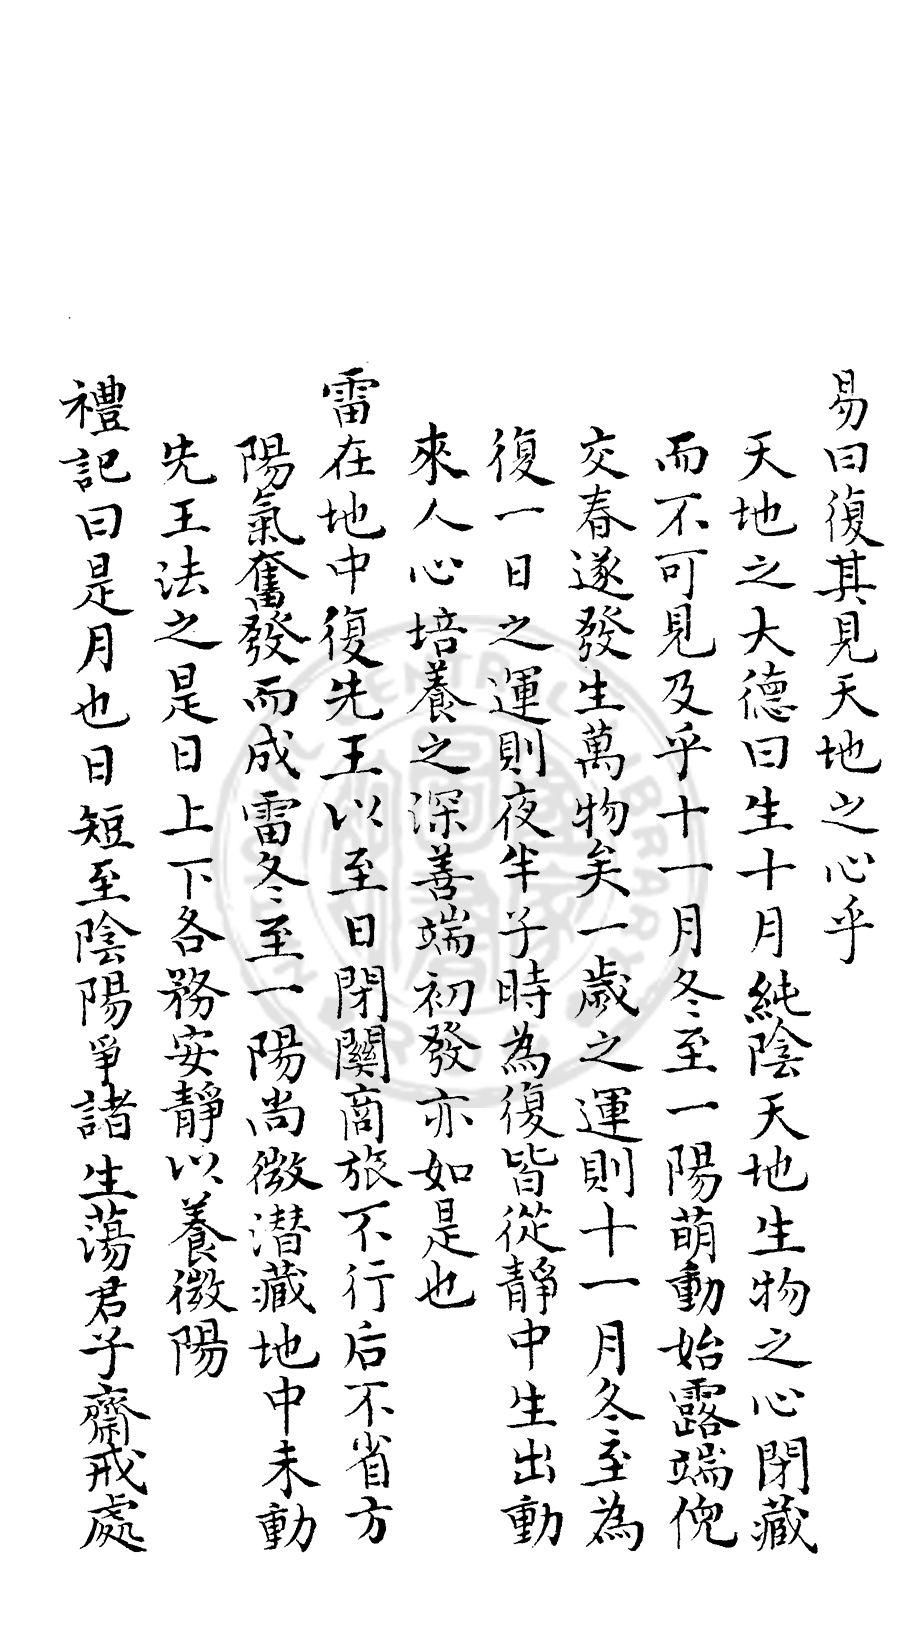 易曰復其見天地之心乎
天地之大德曰生十月純陰天地生物之心閉藏
而不可見及乎十一月冬至一陽萌動始露端倪
交春遂發生萬物矣一歲之運則十一月冬至為
復一日之運則夜半子時為復皆從靜中生出動
來人心培養之深善端初發亦如是也
雷在地中復先王以至日閉關商旅不行后不省方
陽氣奮發而成雷冬至一陽尚微潜藏地中未動
先王法之是日上下各務安靜以養微陽
禮記曰是月也日短至陰陽爭諸生蕩君子齋戒處